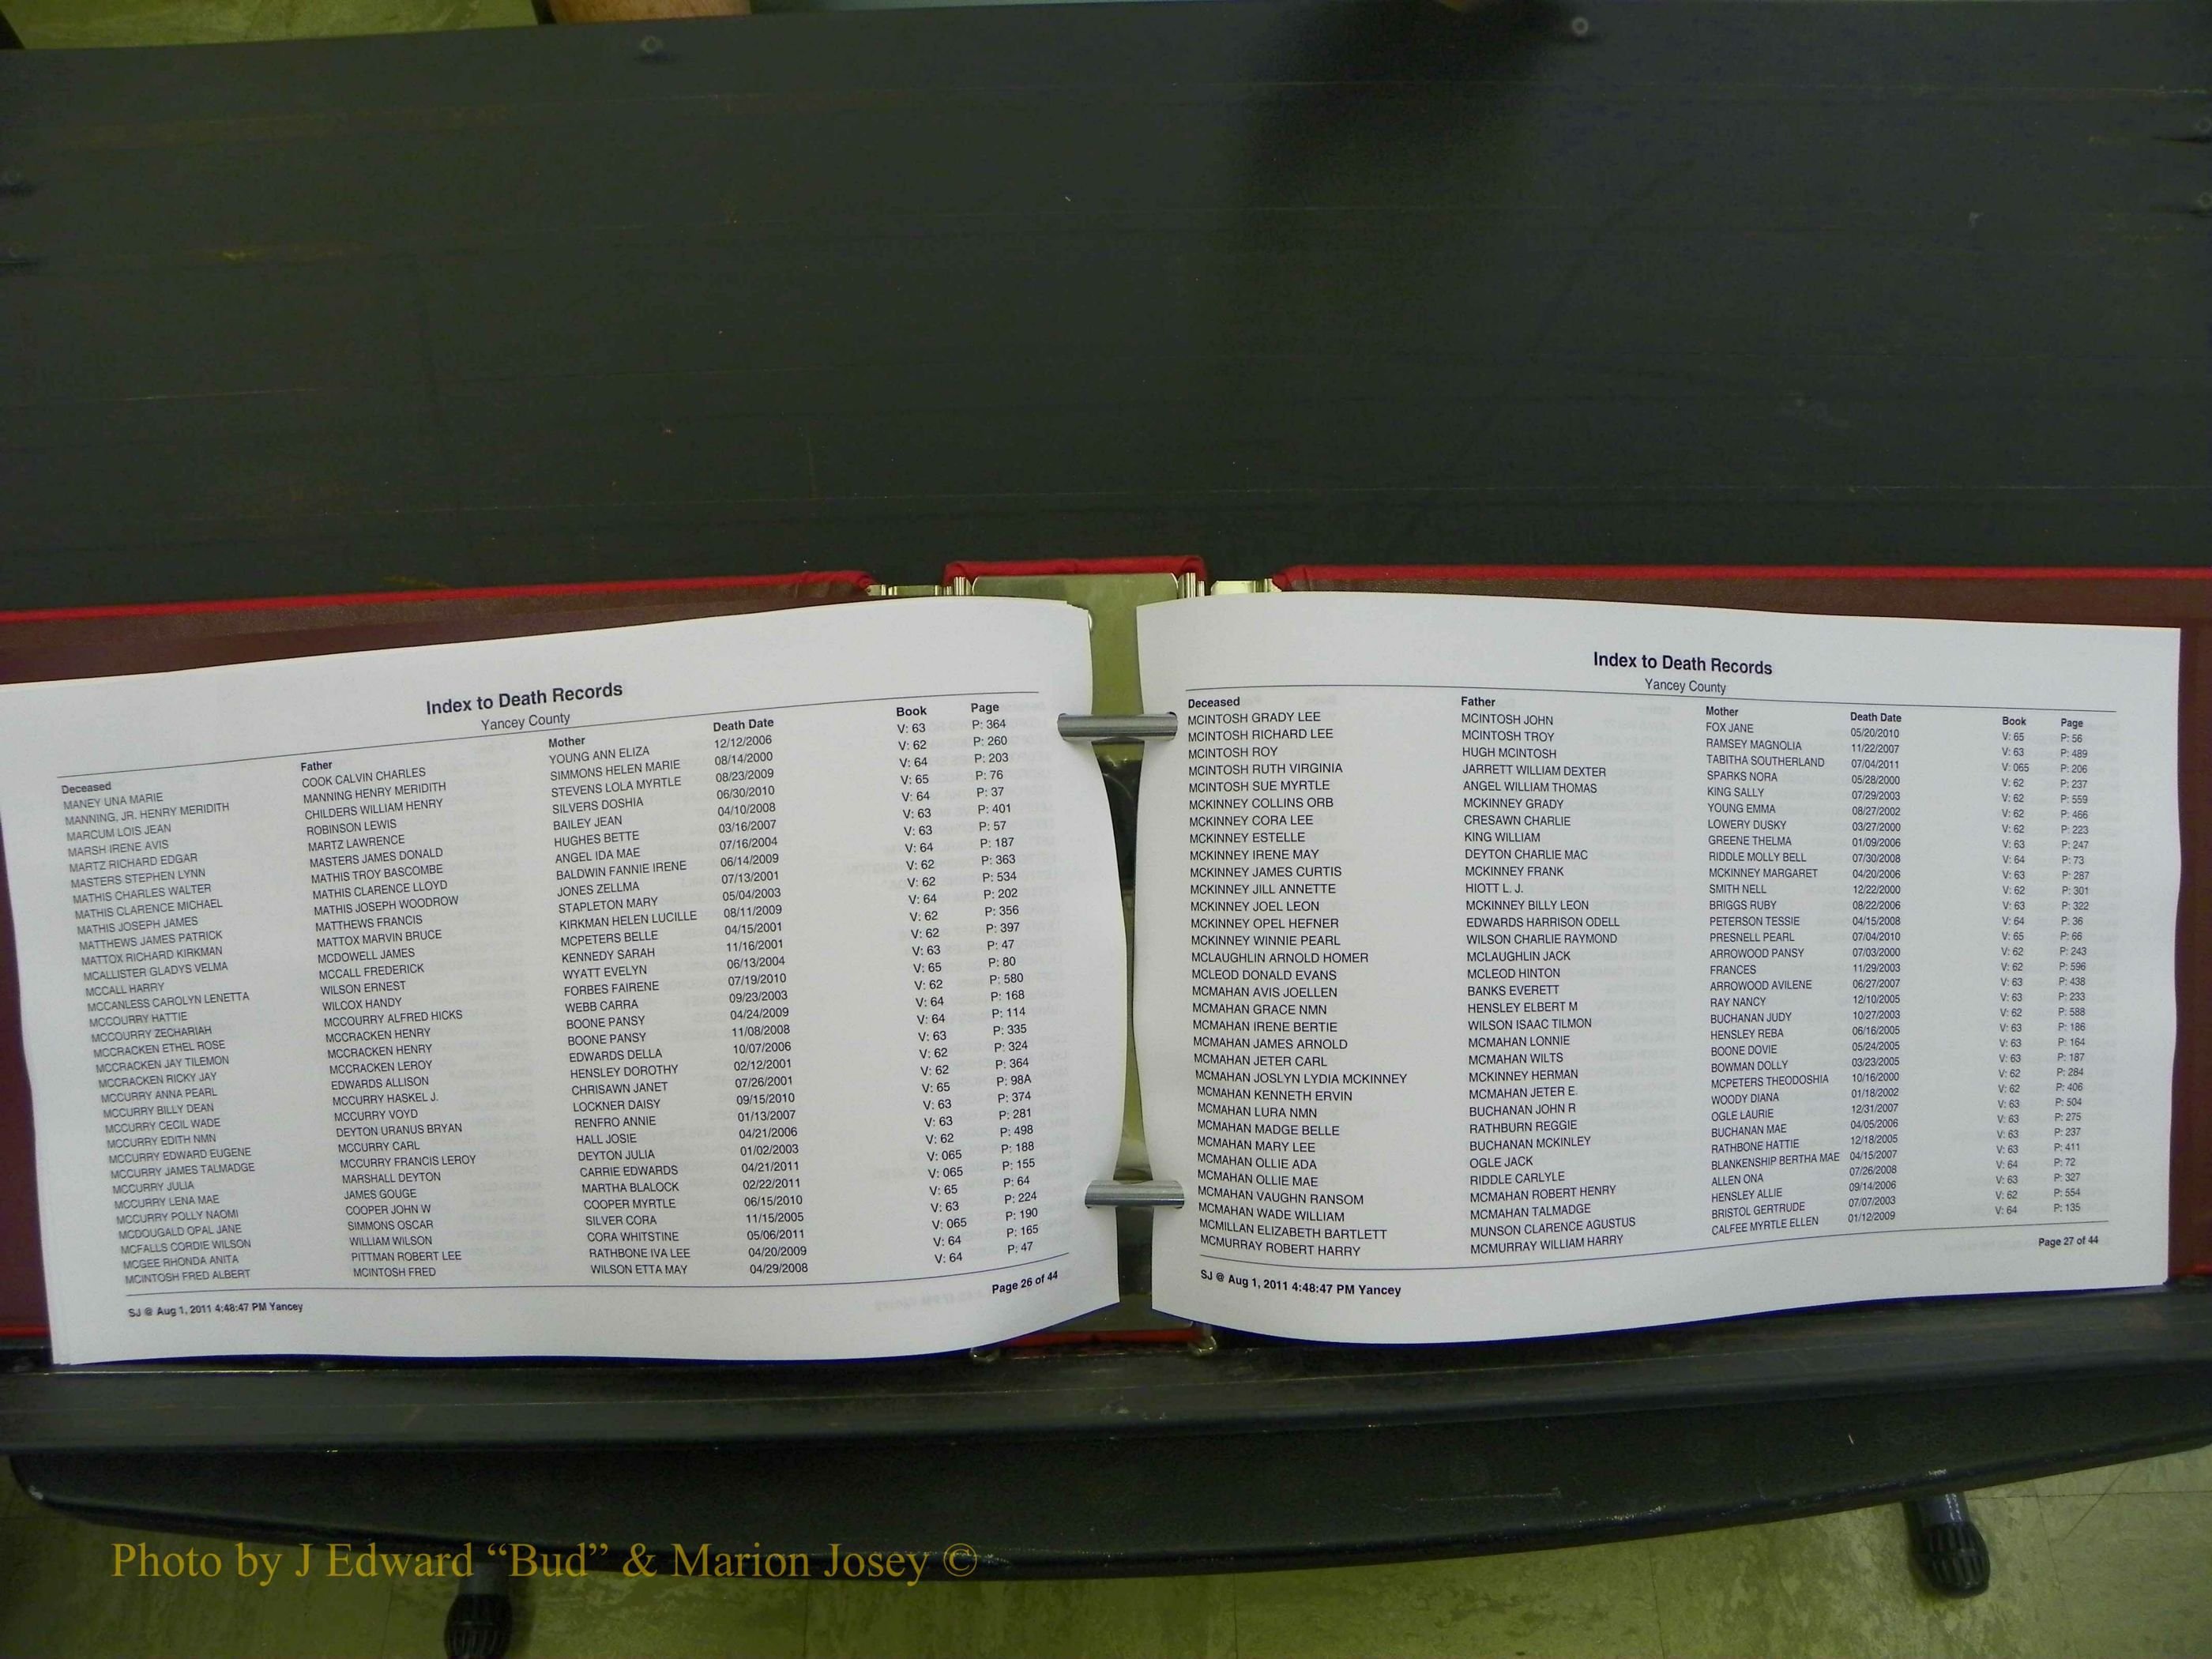 Index to Death Records
Yancey County
Deceased Father Mother Death Date Book Page
MANEY UNA MARIE COOK CALVIN CHARLES YOUNG ANN ELIZA 12/12/2006 V: 63 P: 364
MANNING, JR. HENRY MERIDITH MANNING HENRY MERIDITH SIMMONS HELEN MARIE 08/14/2000 V: 62 P: 260
MARCUM LOIS JEAN CHILDERS WILLIAM HENRY STEVENS LOLA MYRTLE 08/23/2009 V: 64 P: 203
MARSH IRENE AVIS ROBINSON LEWIS SILVERS DOSHIA 06/30/2010 V: 65 P: 76
MARTZ RICHARD EDGAR MARTZ LAWRENCE BAILEY JEAN 04/10/2008 V: 64 P: 37
MASTERS STEPHEN LYNN MASTERS JAMES DONALD HUGHES BETTE 03/16/2007 V: 63 P: 401
MATHIS CHARLES WALTER MATHIS TROY BASCOMBE ANGEL IDA MAE 07/16/2004 V: 63 P: 57
MATHIS CLARENCE MICHAEL MATHIS CLARENCE LLOYD BALDWIN FANNIE IRENE 06/14/2009 V: 64 P: 187
MATHIS JOSEPH JAMES MATHIS JOSEPH WOODROW JONES ZELLMA 07/13/2001 V: 62 P: 363
MATTHEWS JAMES PATRICK MATTHEWS FRANCIS STAPLETON MARY 05/04/2003 V: 62 P: 534
MATTOX RICHARD KIRKMAN MATTOX MARVIN BRUCE KIRKMAN HELEN LUCILLE 08/11/2009 V: 64 P: 202
MCALLISTER GLADYS VELMA MCDOWELL JAMES MCPETERS BELLE 04/15/2001 V: 62 P: 356
MCCALL HARRY MCCALL FREDERICK KENNEDY SARAH 11/16/2001 V: 62 P: 397
MCCANLESS CAROLYN LENETTA WILSON ERNEST WYATT EVELYN 06/13/2004 V: 63 P: 47
MCCOURRY HATTIE WILCOX HANDY FORBES FAIRENE 07/19/2010 V: 65 P: 80
MCCOURRY ZECHARIAH MCCOURRY ALFRED HICKS WEBB CARRA 09/23/2003 V: 62 P: 580
MCCRACKEN ETHEL ROSE MCCRACKEN HENRY BOONE PANSY 04/24/2009 V: 64 P: 168
MCCRACKEN JAY TILEMON MCCRACKEN HENRY BOONE PANSY 11/08/2008 V: 64 P: 114
MCCRACKEN RICKY JAY MCCRACKEN LEROY EDWARDS DELLA 10/07/2006 V: 63 P: 335
MCCURRY ANNA PEARL EDWARDS ALLISON HENSLEY DOROTHY 02/12/2001 V: 62 P: 324
MCCURRY BILLY DEAN MCCURRY HASKEL J. CHRISAWN JANET 07/26/2001 V: 62 P: 364
MCCURRY CECIL WADE MCCURRY VOYD LOCKNER DAISY 09/15/2010 V: 65 P: 98A
MCCURRY EDITH NMN DEYTON URANUS BRYAN RENFRO ANNIE 01/13/2007 V: 63 P: 374
MCCURRY EDWARD EUGENE MCCURRY CARL HALL JOSIE 04/21/2006 V: 63 P: 281
MCCURRY JAMES TALMADGE MCCURRY FRANCIS LEROY DEYTON JULIA 01/02/2003 V: 62 P: 498
MCCURRY JULIA MARSHALL DEYTON CARRIE EDWARDS 04/21/2011 V: 065 P: 188
MCCURRY LENA MAE JAMES GOUGE MARTHA BLALOCK 02/22/2011 V: 065 P: 155
MCCURRY POLLY NAOMI COOPER JOHN W COOPER MYRTLE 06/15/2010 V: 65 P: 64
MCDOUGALD OPAL JANE SIMMONS OSCAR SILVER CORA 11/15/2005 V: 63 P: 224
MCFALLS CORDIE WILSON WILLIAM WILSON CORA WHITSTINE 05/06/2011 V: 065 P: 190
MCGEE RHONDA ANITA PITTMAN ROBERT LEE RATHBONE IVA LEE 04/20/2009 V: 64 P: 165
MCINTOSH FRED ALBERT MCINTOSH FRED WILSON ETTA MAY 04/29/2008 V: 64 P: 47
SJ @ Aug 1, 2011 4:48:47 PM Yancey Page 26 of 44
Index to Death Records
Yancey County
Deceased Father Mother Death Date Book Page
MCINTOSH GRADY LEE MCINTOSH JOHN FOX JANE 05/20/2010 V: 65 P: 56
MCINTOSH RICHARD LEE MCINTOSH TROY RAMSEY MAGNOLIA 11/22/2007 V: 63 P: 489
MCINTOSH ROY HUGH MCINTOSH TABITHA SOUTHERLAND 07/04/2011 V: 065 P: 206
MCINTOSH RUTH VIRGINIA JARRETT WILLIAM DEXTER SPARKS NORA 05/28/2000 V: 62 P: 237
MCINTOSH SUE MYRTLE ANGEL WILLIAM THOMAS KING SALLY 07/29/2003 V: 62 P: 559
MCKINNEY COLLINS ORB MCKINNEY GRADY YOUNG EMMA 08/27/2002 V: 62 P: 466
MCKINNEY CORA LEE CRESAWN CHARLIE LOWERY DUSKY 03/27/2000 V: 62 P: 223
MCKINNEY ESTELLE KING WILLIAM GREENE THELMA 01/09/2006 V: 63 P: 247
MCKINNEY IRENE MAY DEYTON CHARLIE MAC RIDDLE MOLLY BELL 07/30/2008 V: 64 P: 73
MCKINNEY JAMES CURTIS MCKINNEY FRANK MCKINNEY MARGARET 04/20/2006 V: 63 P: 287
MCKINNEY JILL ANNETTE HIOTT L. J. SMITH NELL 12/22/2000 V: 62 P: 301
MCKINNEY JOEL LEON MCKINNEY BILLY LEON BRIGGS RUBY 08/22/2006 V: 63 P: 322
MCKINNEY OPEL HEFNER EDWARDS HARRISON ODELL PETERSON TESSIE 04/15/2008 V: 64 P: 36
MCKINNEY WINNIE PEARL WILSON CHARLIE RAYMOND PRESNELL PEARL 07/04/2010 V: 65 P: 66
MCLAUGHLIN ARNOLD HOMER MCLAUGHLIN JACK ARROWOOD PANSY 07/03/2000 V: 62 P: 243
MCLEOD DONALD EVANS MCLEOD HINTON FRANCES 11/29/2003 V: 62 P: 596
MCMAHAN AVIS JOELLEN BANKS EVERETT ARROWOOD AVILENE 06/27/2007 V: 63 P: 438
MCMAHAN GRACE NMN HENSLEY ELBERT M RAY NANCY 12/10/2005 V: 63 P: 233
MCMAHAN IRENE BERTIE WILSON ISAAC TILMON BUCHANAN JUDY 10/27/2003 V: 62 P: 588
MCMAHAN JAMES ARNOLD MCMAHAN LONNIE HENSLEY REBA 06/16/2005 V: 63 P: 186
MCMAHAN JETER CARL MCMAHAN WILTS BOONE DOVIE 05/24/2005 V: 63 P: 164
MCMAHAN JOSLYN LYDIA MCKINNEY MCKINNEY HERMAN BOWMAN DOLLY 03/23/2005 V: 63 P: 187
MCMAHAN KENNETH ERVIN MCMAHAN JETER E. MCPETERS THEODOSHIA 10/16/2000 V: 62 P: 284
MCMAHAN LURA NMN BUCHANAN JOHN R WOODY DIANA 01/18/2002 V: 62 P: 406
MCMAHAN MADGE BELLE RATHBURN REGGIE OGLE LAURIE 12/31/2007 V: 63 P: 504
MCMAHAN MARY LEE BUCHANAN MCKINLEY BUCHANAN MAE 04/05/2006 V: 63 P: 275
MCMAHAN OLLIE ADA OGLE JACK RATHBONE HATTIE 12/18/2005 V: 63 P: 237
MCMAHAN OLLIE MAE RIDDLE CARLYLE BLANKENSHIP BERTHA MAE 04/15/2007 V: 63 P: 411
MCMAHAN VAUGHN RANSOM MCMAHAN ROBERT HENRY ALLEN ONA 07/26/2008 V: 64 P: 72
MCMAHAN WADE WILLIAM MCMAHAN TALMADGE HENSLEY ALLIE 09/14/2006 V: 63 P: 327
MCMILLAN ELIZABETH BARTLETT MUNSON CLARENCE AGUSTUS BRISTOL GERTRUDE 07/07/2003 V: 62 P: 554
MCMURRAY ROBERT HARRY MCMURRAY WILLIAM HARRY CALFEE MYRTLE ELLEN 01/12/2009 V: 64 P: 135
SJ @ Aug 1, 2011 4:48:47 PM Yancey Page 27 of 44
Photo by J Edward “Bud” & Marion Josey ©